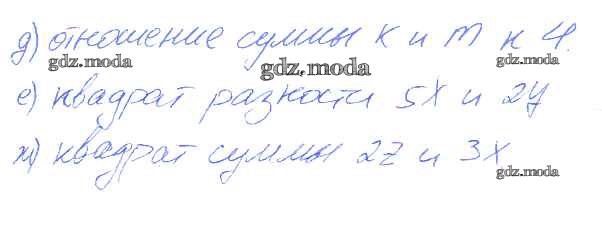 д) отношение суммы K и m к 4.
gdz.moda gdz.moda gdz.moda
е) квадрат разности 5x и 2y
ж) квадрат суммы 2z и 3x
gdz.moda